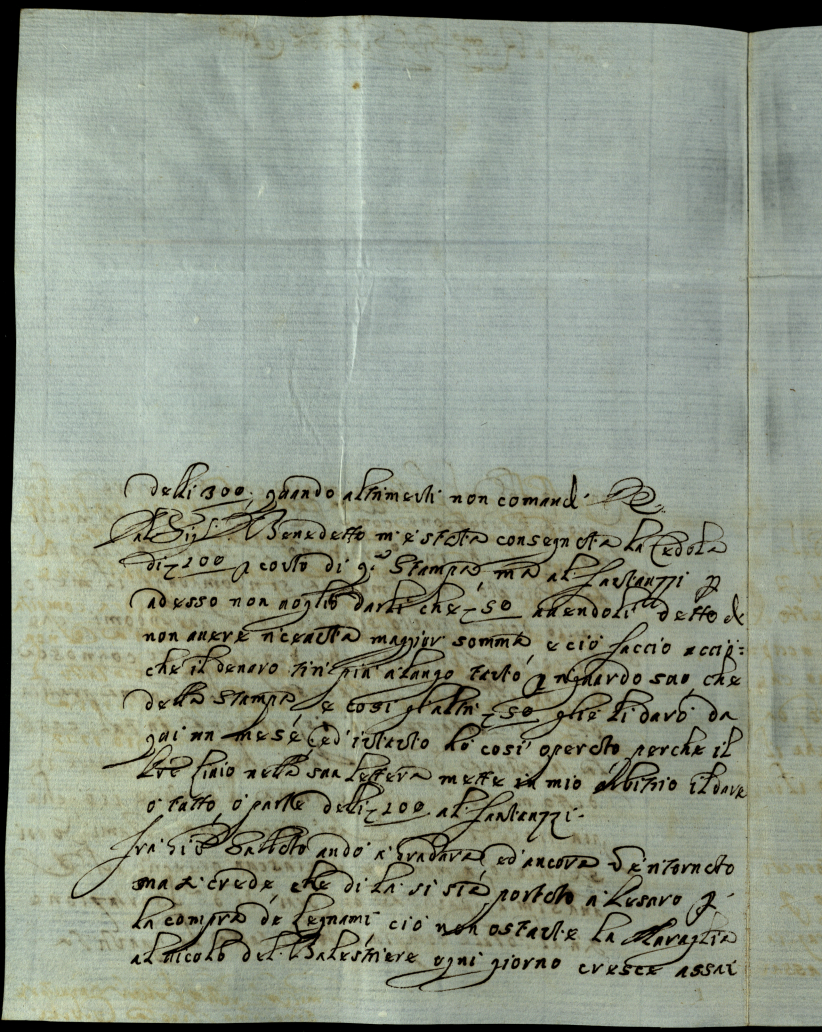 delli 300, quando altrimenti non comandi
Dal Sig.r Benedetto m'è stata consegnata la Cedola
di 100 p costo di q.a Stampa, ma al Fantauzzi p
adesso non voglio darli che 50 avendoli detto di
non avere ricevuta maggior somma e ciò faccio acciò:
che il denaro tiri più a lungo tanto p riguardo suo che
della stampa e così gl'altri 50 glie li darò da
qui un mese ed intanto ho così operato perche il
Linio nella sua lettera mette in mio arbitrio il dare
o tutto o parte delli 100 al Fantauzzi.
Fra Gio Battista andò a Gradara ed ancora è ritornato
ma si crede che di la si sia portato a Pesaro p
la compra de Legnami ciò non ostante la Muraglia
al vicolo del Balestriere ogni giorno cresce assai